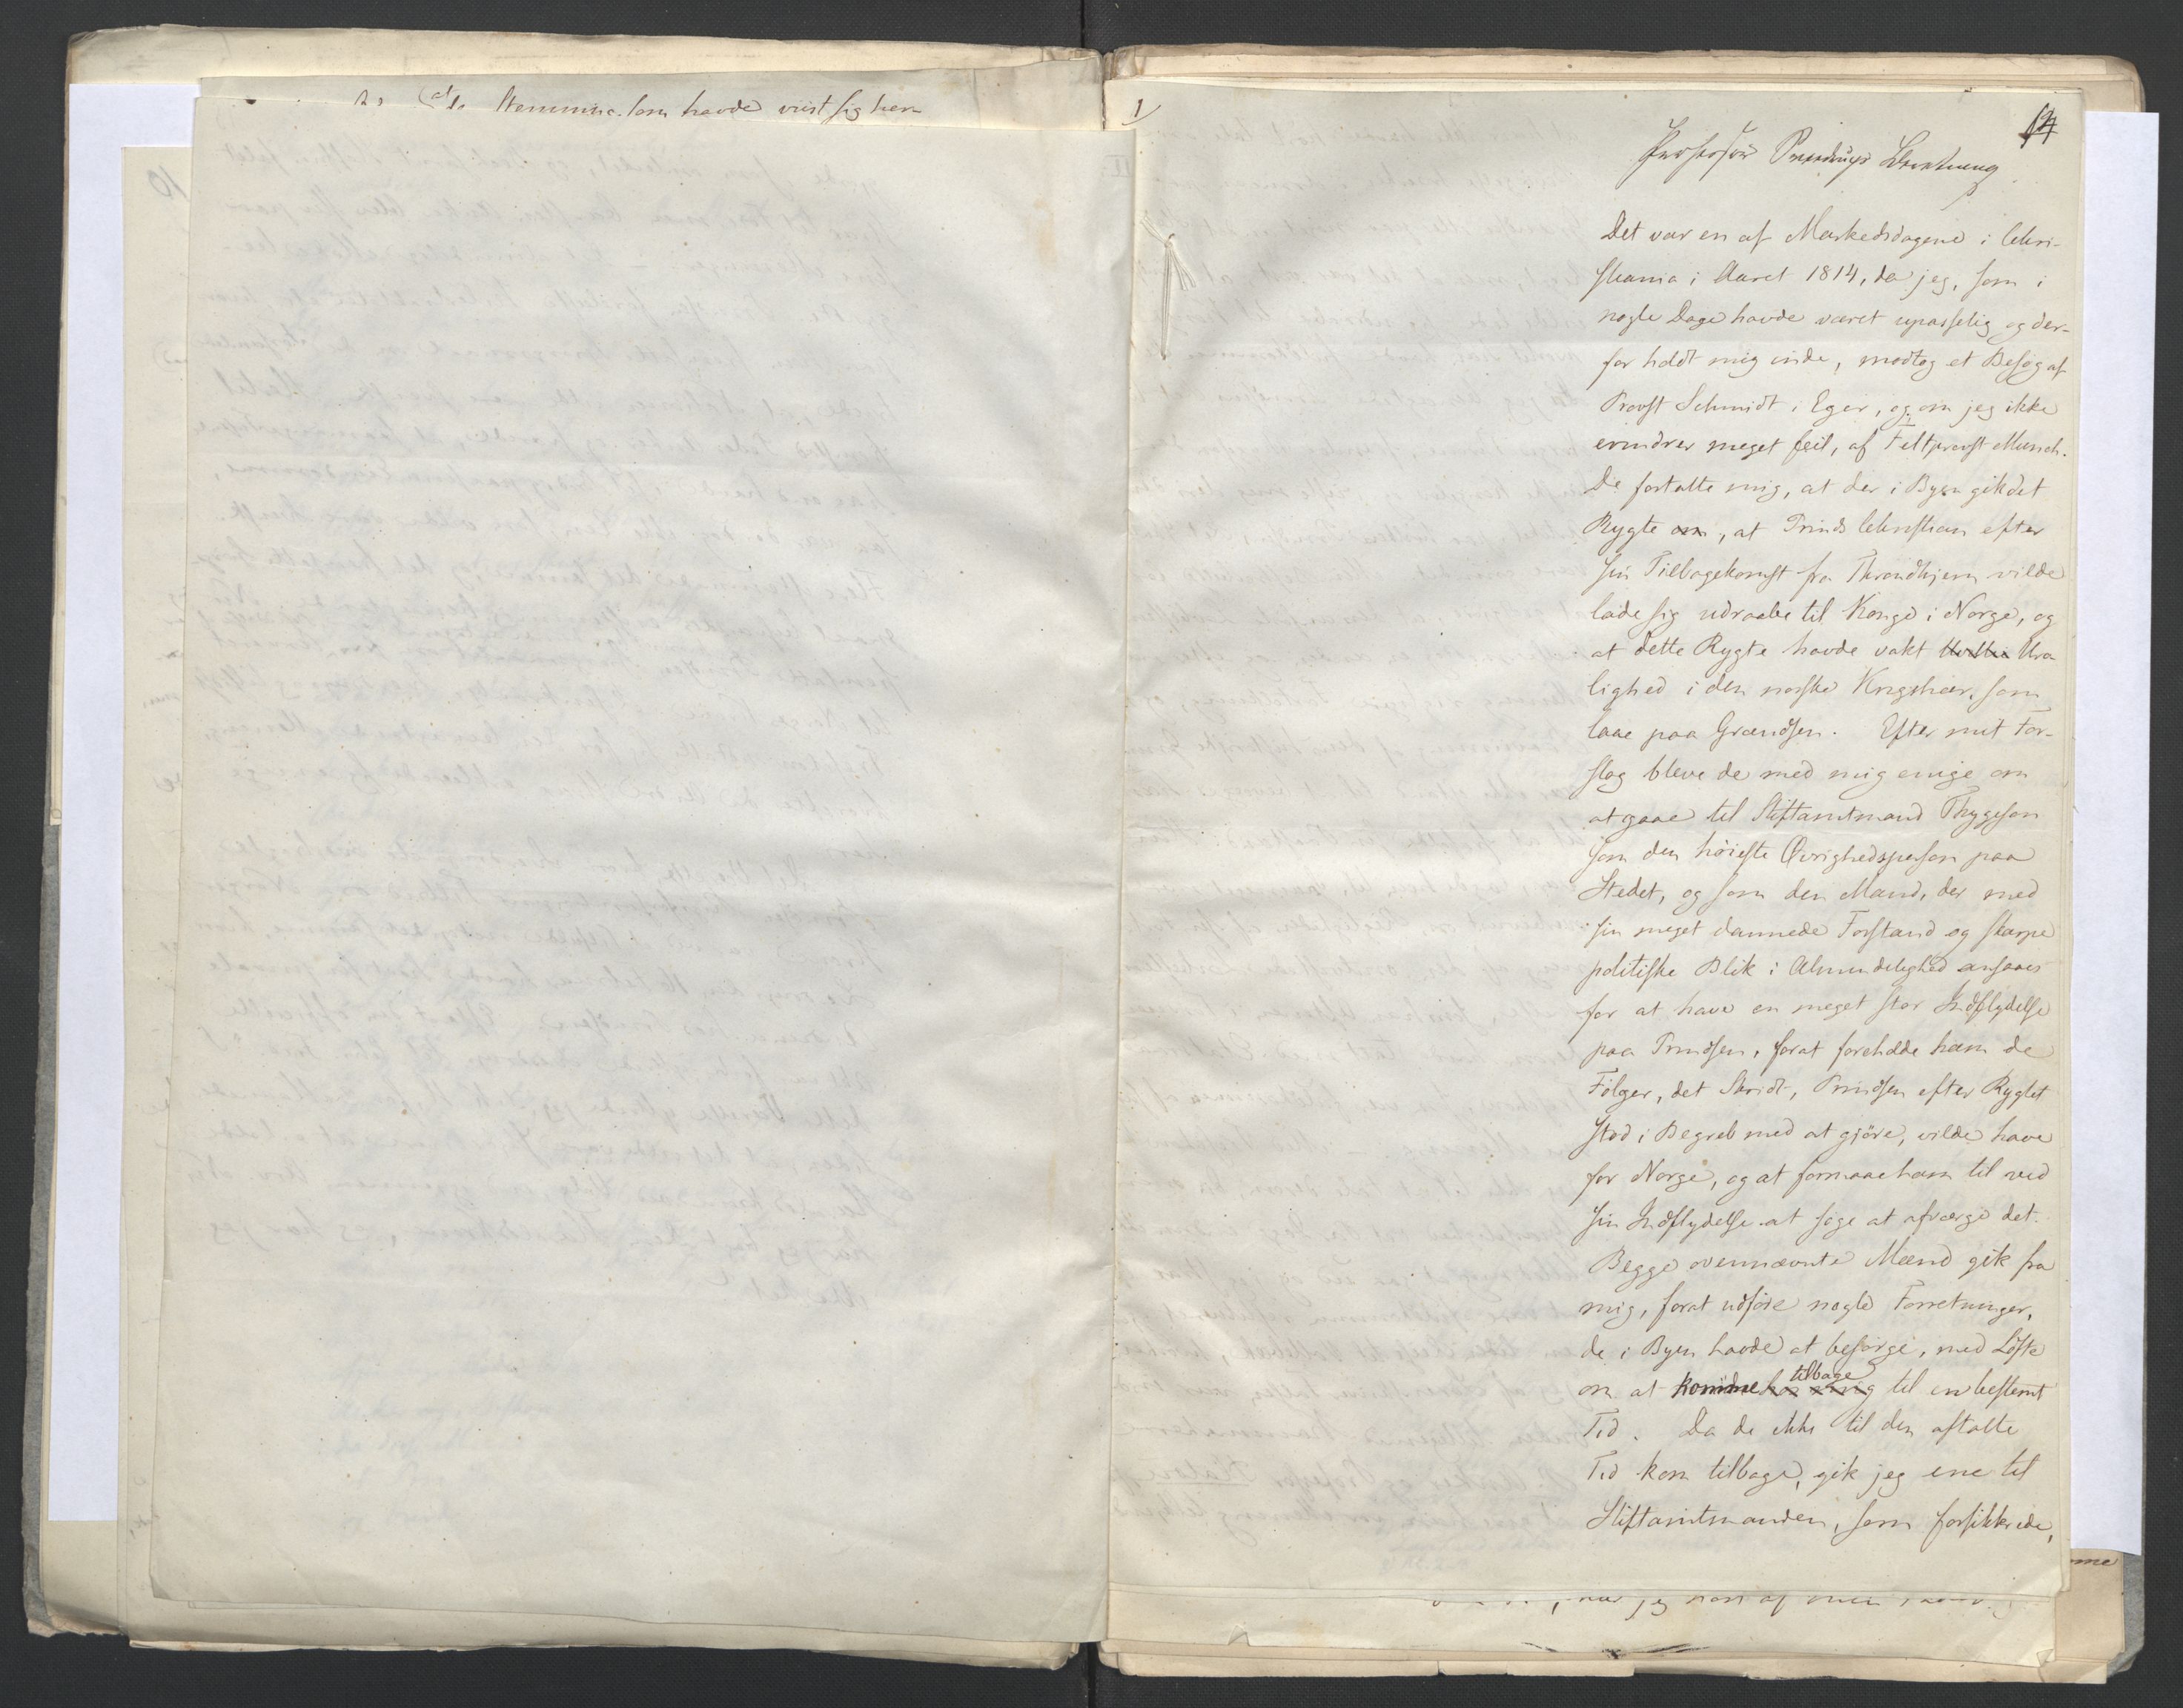 de Stemninger som havde viist sig hen
1/
Professor Rasmussens
Det var en af Markedsdagene i Chri-
stiania i Aaret 1814, da jeg, som i
nogle Dage havde været upasselig og der-
for holdt mig inde, modtog et Besøg af
Provst Schmidt i Eger, og om jeg ikke
erindrer meget feil, af Feltprovst Munch.
De fortalte mig, at der i Byen gik det
Rygte om, at Prinds Christian efter
sin Tilbagekomst fra Throndhjem vilde
lade sig udraabe til Konge i Norge, og
at dette Rygte havde vakt Uro
lighed i den norske Krigshær, som
laae paa Grændsen. Efter mit For-
slag bleve de med mig enige om
at gaae til Stiftamtmand Thygeson
som den høieste Øvrighedsperson paa
Stedet, og som den Mand, der med
sin meget dannede Forstand og skarpe
politiske Blik i Almindelighed ansaaes
for at have en meget stor Indflydelse
paa Prindsen, forat foreholde ham de
Følger, det Skridt, Prindsen efter Rygtet
stod i Begreb med at gjøre, vilde have
for Norge, og at formaae ham til ved
sin Indflydelse at søge at afværge det.
Begge ovennævnte Mænd gik fra
mig, forat udføre nogle Forretninger,
de i Byen havde at besørge, med Løfte
om at komme hos mig tilbage til en bestemt
Tid. Da de ikke til den aftalte
Tid kom tilbage, gik jeg ene til
Stiftamtmanden, som forsikkrede,